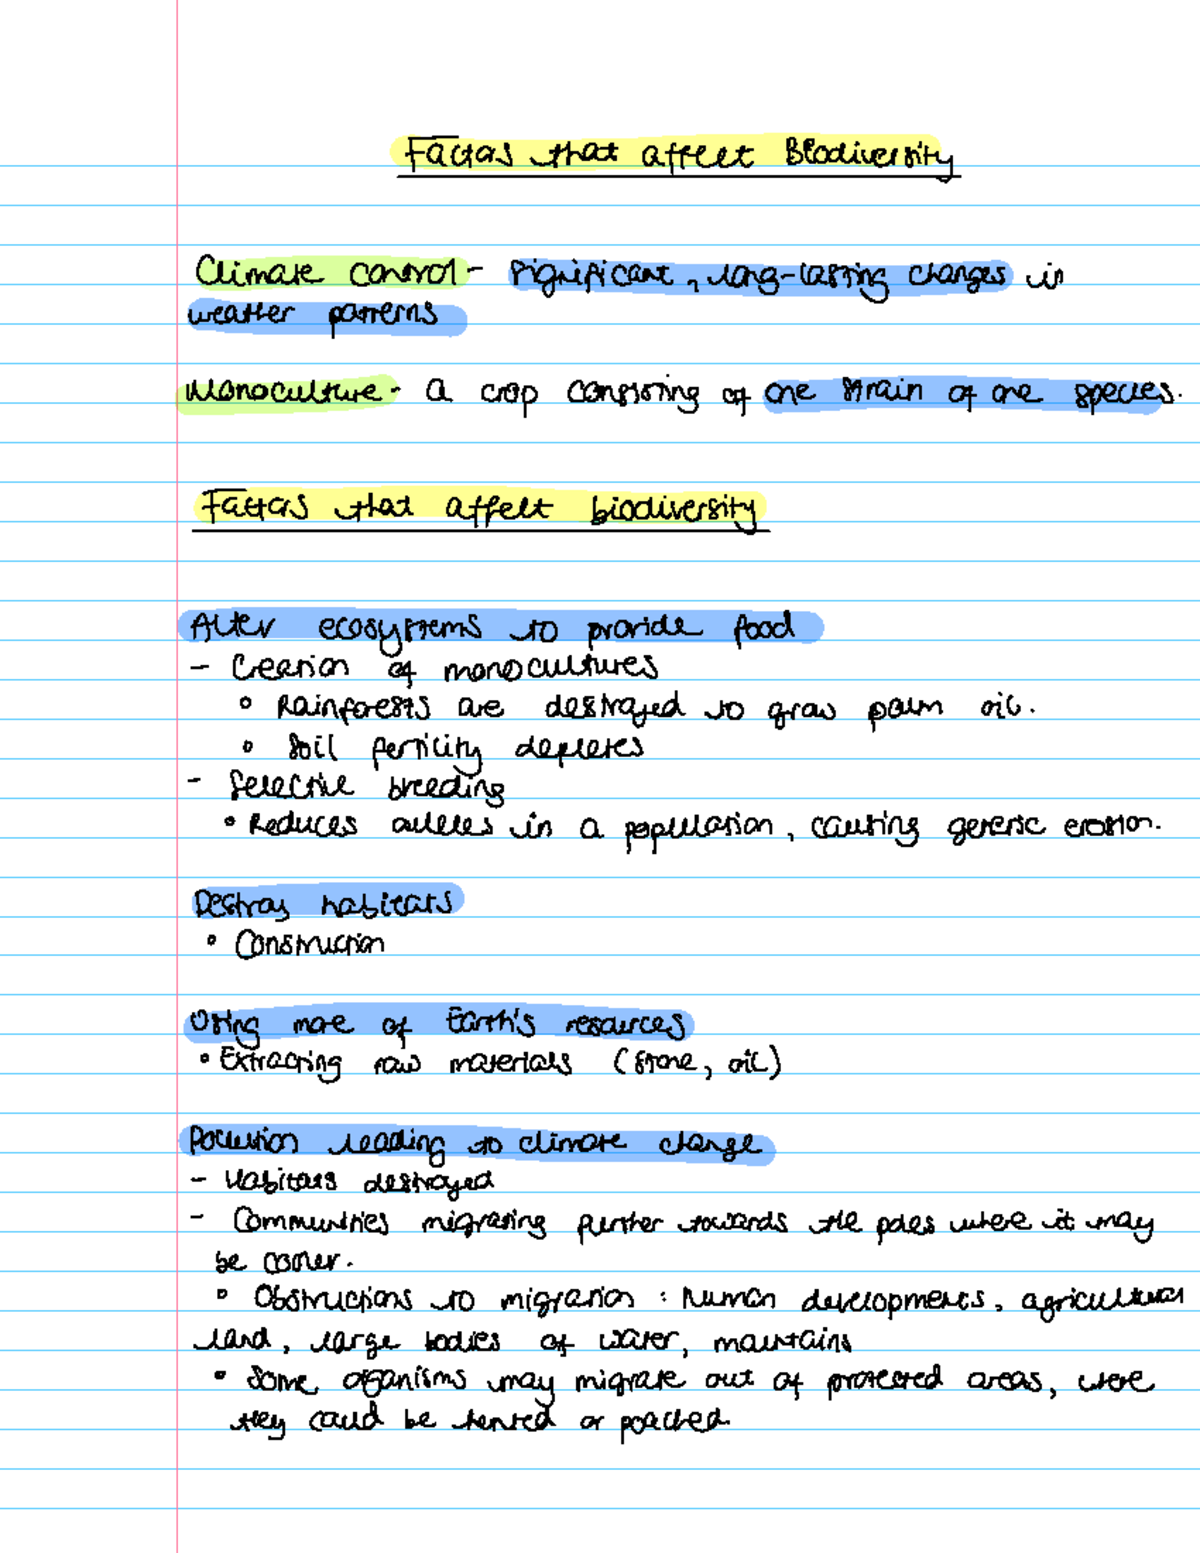 Factors that affect Biodiversity
Climate control - significant, long-lasting changes in
weather patterns
Monoculture - a crop consisting of one strain of one species.
Factors that affect biodiversity
Alter ecosystems to provide food
- Creation of monocultures
° Rainforests are destroyed to grow palm oil.
° Soil fertility depletes
- Selective breeding
° Reduces alleles in a population, causing genetic erosion.
Destroy habitats
° Construction
Using more of Earth's resources
° Extracting raw materials (stone, oil)
Pollution leading to climate change
- Habitats destroyed
- Communities migrating further towards the poles where it may
be cooler.
° Obstructions to migration : human developments, agricultural
land, large bodies of water, mountains
° Some organisms may migrate out of protected areas, where
they could be hunted or poached.